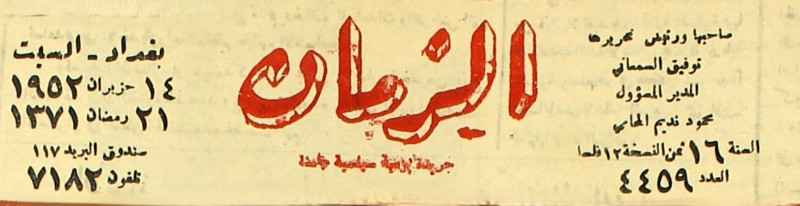 صاحبها ورئيس تحريرها
توفيق السمعاني
المدير المسؤول
محمود نديم المحامي
السنة ١٦ ثمن النسخة ١٢ فلسا
العدد ٤٤٥٩
الزمان
جريدة يومية سياسية جامعة
بغداد - السبت
١٤ حزيران ١٩٥٢
٢١ رمضان ١٣٧١
صندوق البريد ١١٧
تلفون ٧١٨٢